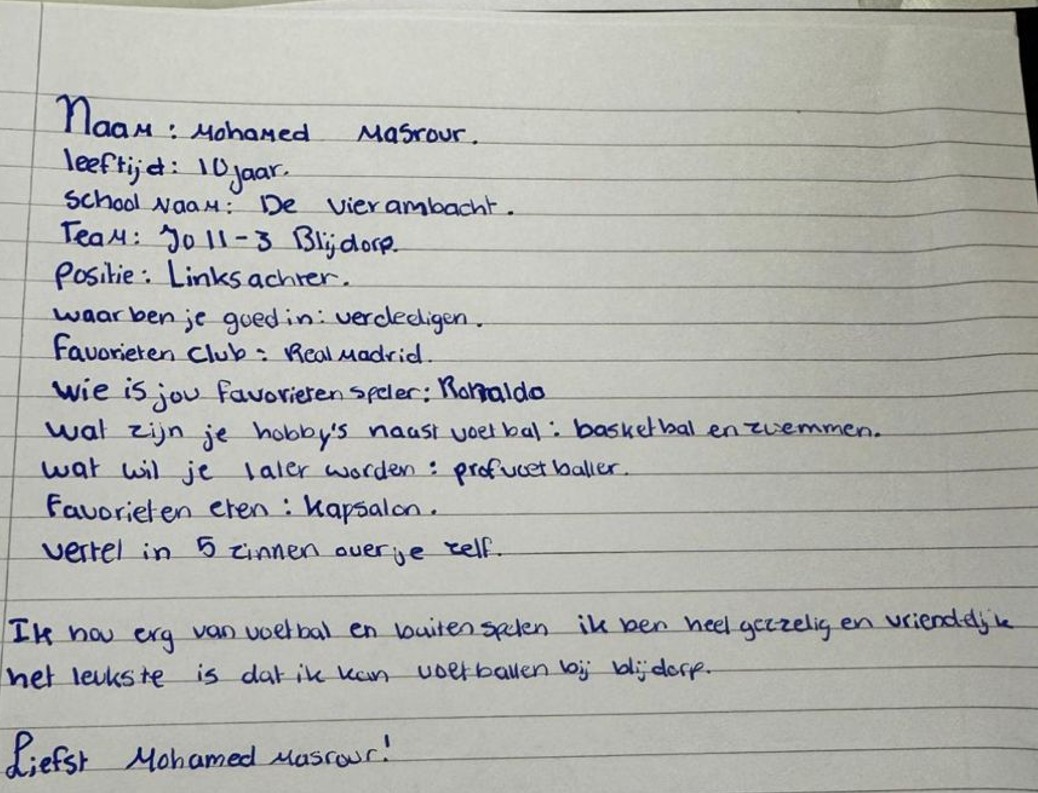 Naam: Mohamed Masrour.
leeftijd: 10 jaar.
School Naam: De vier ambacht.
Team: Jo 11-3 Blijdorp.
Positie: Linksachter.
waar ben je goed in: verdedigen.
favorieten club: Real Madrid.
wie is jou favorieten speler: Ronaldo
wat zijn je hobby's naast voetbal: basketbal en zwemmen.
wat wil je later worden: profvoetballer.
Favorieten eten: kapsalon.
vertel in 5 zinnen over je zelf.
Ik hou erg van voetbal en buiten spelen ik ben heel gezelig en vriendelijk
het leukste is dat ik kan voetballen bij blijdorp.
Liefst Mohamed Masrour!